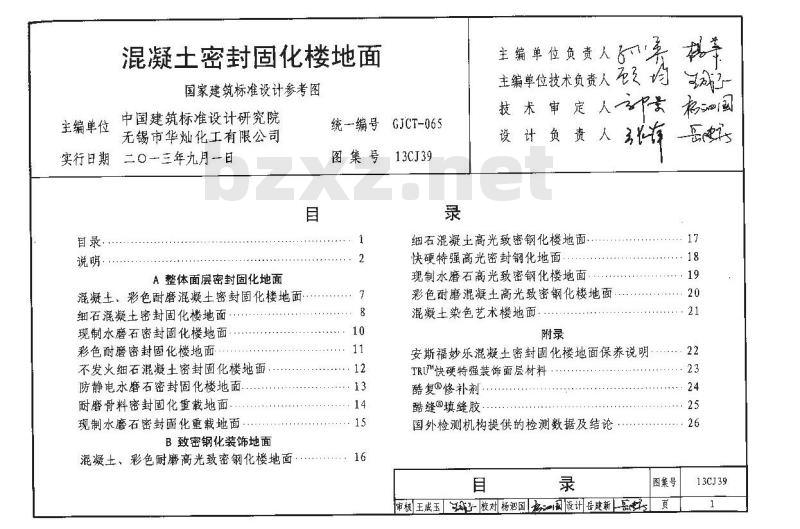 混凝土密封固化楼地面
国家建筑标准设计参考图
主编单位 中国建筑标准设计研究院
无锡市华灿化工有限公司
统一编号 GJCT-065
实行日期 二〇一三年九月一日
图集号 13CJ39
主编单位负责人
主编单位技术负责人
技术审定人
设计负责人
bzxz.net
目录
目录 1
说明 2
A 整体面层密封固化地面
混凝土、彩色耐磨混凝土密封固化楼地面 7
细石混凝土密封固化楼地面 8
现制水磨石密封固化楼地面 10
彩色耐磨密封固化楼地面 11
不发火细石混凝土密封固化楼地面 12
防静电水磨石密封固化楼地面 13
耐磨骨料密封固化重载地面 14
现制水磨石密封固化重载地面 15
B 致密钢化装饰地面
混凝土、彩色耐磨高光致密钢化楼地面 16
细石混凝土高光致密钢化楼地面 17
快硬特强高光密封钢化地面 18
现制水磨石高光致密钢化楼地面 19
彩色耐磨混凝土高光致密钢化楼地面 20
混凝土染色艺术楼地面 21
附录
安斯福妙乐混凝土密封固化楼地面保养说明 22
TRU™快硬特强装饰面层材料 23
酷复®修补剂 24
酷缝®填缝胶 25
国外检测机构提供的检测数据及结论 26
目录
图集号 13CJ39
审核 王成玉 校对 杨泗国 设计 岳建新 页 1